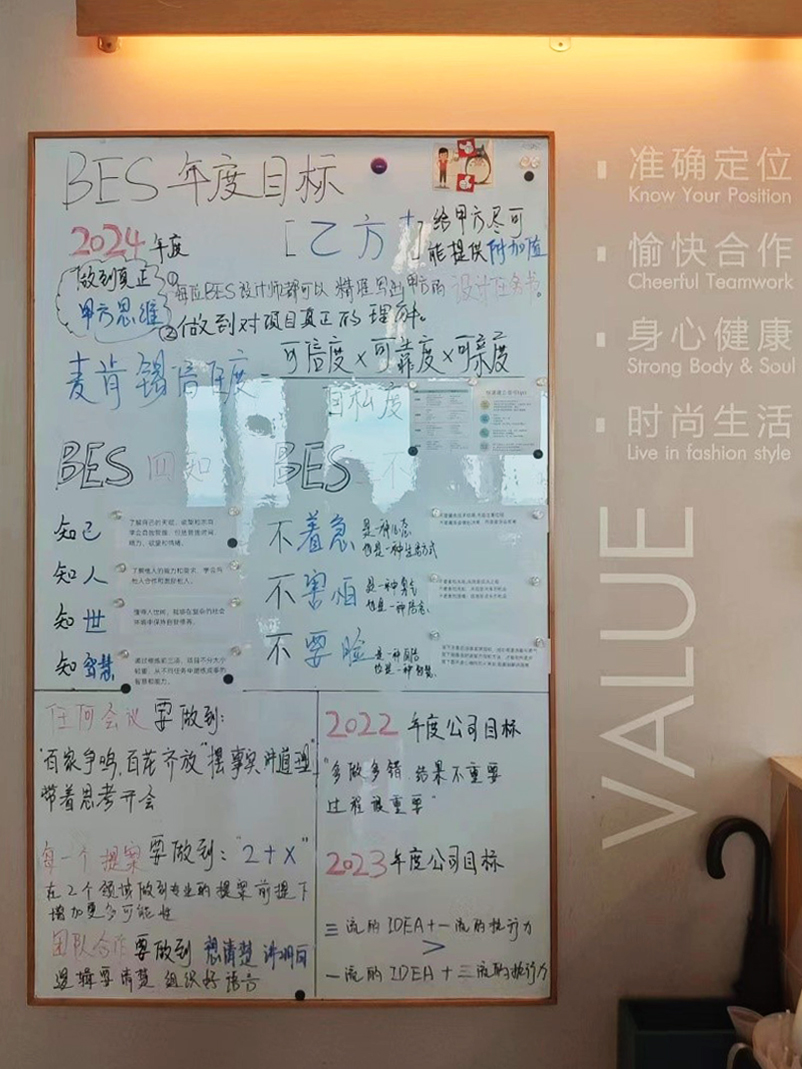 BES 年度目标
2024 年度
[乙方+]
给甲方尽可
能提供附加值
做到真正
甲方思维
① 每位BES设计师都可以 精准写到甲方的 设计任务书。
② 做到对项目真正的 理解。
麦肯锡信任度 = 可信度 × 可靠度 × 可亲度
自私度
BES 四知
知己
知人
知世
知智慧
BES 三不
不着急 是一种心态
也是一种生活方式
不害怕 是一种勇气
也是一种
不要脸 是一种
也是一种智慧.
任何会议 要做到:
"百家争鸣,百花齐放" "摆事实 讲道理"
带着思考开会
每一个 提案 要做到: "2+X"
在2个领域做到专业的提案前提下
增加更多可能性
团队合作 要做到 想清楚 讲明白
逻辑要清楚 组织好语言
2022 年度公司目标
"多做多错 结果不重要
过程最重要"
2023 年度公司目标
三流的 IDEA + 一流的执行力
>
一流的 IDEA + 三流的执行力
准确定位
Know Your Position
愉快合作
Cheerful Teamwork
身心健康
Strong Body & Soul
时尚生活
Live in fashion style
VALUE